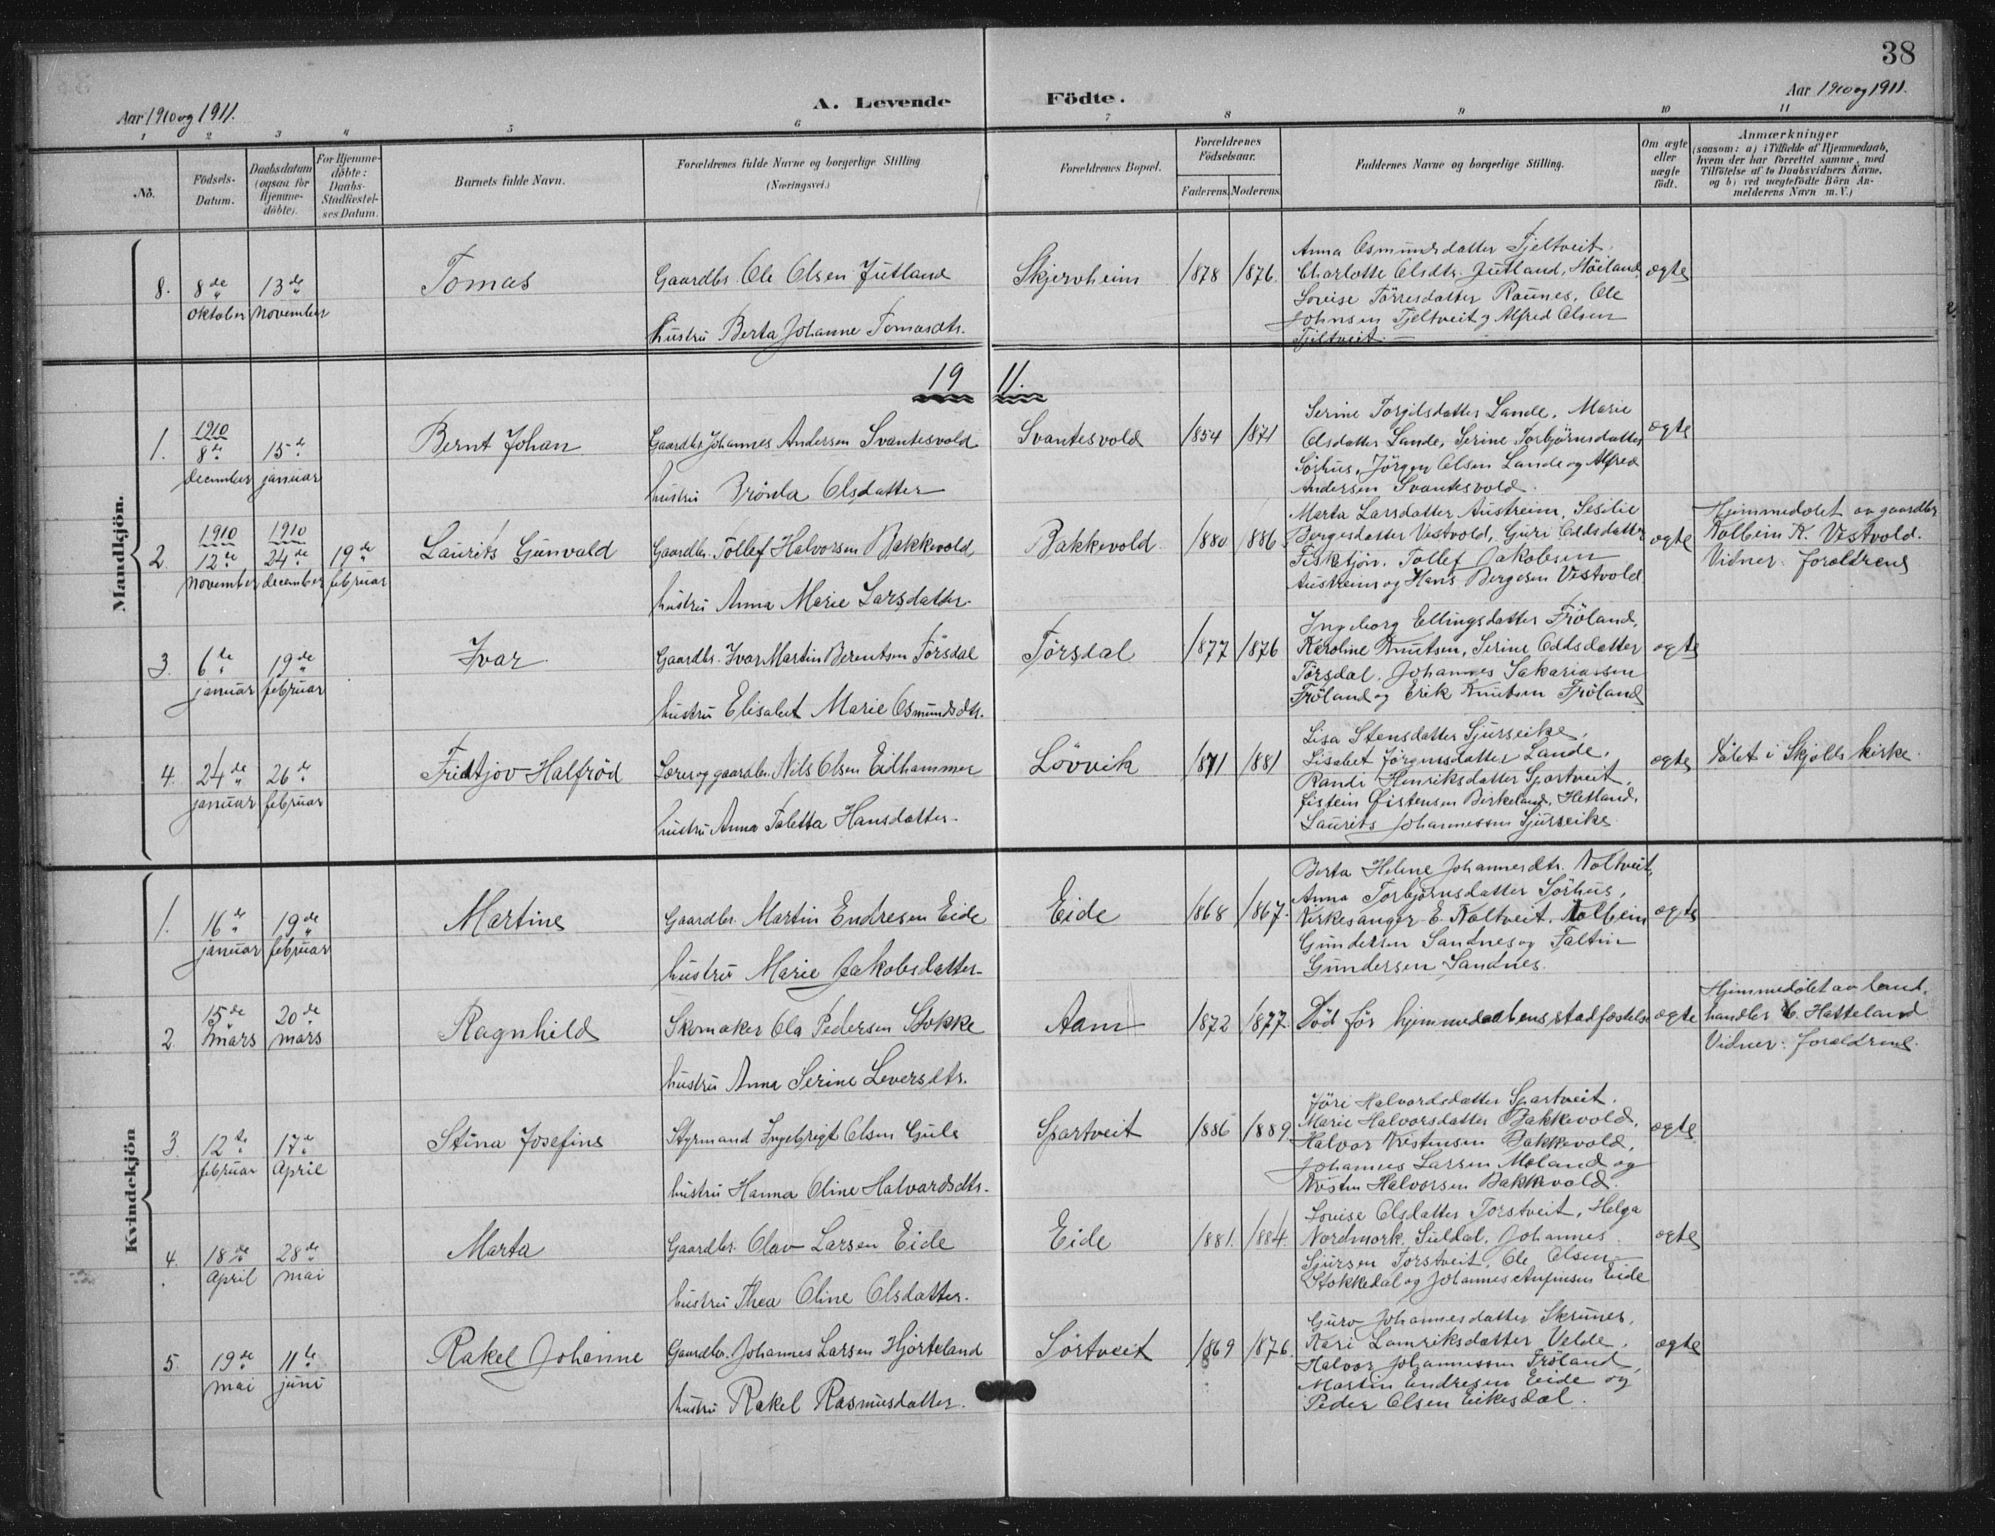 38
Aar 1910 og 1911.
A. Levende Födte.
Aar 1910 og 1911.
1 2 3 4 5 6 7 8 9 10 11
No.
Födsels-Datum.
Daabsdatum (ogsaa for Hjemme-döbte).
For Hjemme-döbte: Daabs-Stadfæstel-ses Datum.
Barnets fulde Navn.
Forældrenes fulde Navne og borgerlige Stilling
(Næringsvei.)
Forældrenes Bopæl.
Forældrenes Födselsaar.
Faderens. Moderens.
Faddernes Navne og borgerlige Stilling.
Om ægte eller uægte födt.
Anmærkninger
(saasom: a) i Tilfælde af Hjemmedaab, hvem der har forrettet samme, med Tilföielse af to Daabsvidners Navne, og b) ved uægtefödte Börn An-melderens Navn m. V.)
Mandkjön.
8. 8de oktober 13de november Tomas
Gaardbr. Ole Olsen Jutland
hustru Berta Johanne Tomasdtr.
Skjervheim 1878 1876.
Anna Osmundsdatter Tjeltveit.
Charlotte Olsdtr. Jutland, Höiland
Lovise Törresdatter Raunes, Ole
Johnsen Tjeltveit og Alfred Olsen
Tjeltveit.
ægte
1911.
1. 1910 8de december 15de januar Bernt Johan
Gaardbr. Johannes Andersen Svantesvold
hustru Brönla Olsdatter
Svantesvold 1854 1871
Serine Torgilsdatter Lande, Marie
Olsdatter Lande, Serine Torbjørnsdatter
Sörhus, Jörgen Olsen Lande og Alfred
Andersen Svantesvold.
ægte
2. 1910 12te november 1910 24de december 19de februar Laurits Gunvald
Gaardbr. Tollef Halvorsen Bakkevold
hustru Anna Marie Larsdatter.
Bakkevold. 1880 1886
Marta Larsdatter Austreim, Sesilie
Bergesdatter Vestvold, Guri Oddsdatter
Fisketjön, Tollef Jakobsen
Austreim og Hans Bergesen Vestvold
ægte
Hjemmedöbt av gaardbr.
Kolbein K. Vestvold.
Vidner: forældrene
3. 6te januar 19de februar Ivar
Gaardbr. Ivar Martin Berentsen Törsdal
hustru Elisabet Marie Osmundsdtr.
Törsdal 1877 1876
Ingeborg Ellingsdatter Fröland,
Karoline Knutsen, Serine Oddsdatter
Törsdal, Johannes Sakariassen
Fröland og Erik Knutsen Fröland
ægte
4. 24de januar 26de februar Fridtjov Halfröd
Lærer og gaardbr. Nils Olsen Eidhammer
hustru Anna Taletta Hansdatter.
Lövvik 1871 1881
Lisa Stensdatter Sjurseike,
Lisabet Jörgensdatter Lande,
Randi Henriksdatter Spartveit,
Eistein Öistensen Birkeland, Hetland,
Laurits Johannessen Sjurseike.
ægte
Döbt i Skjolds kirke.
Kvindekjön
1. 16de januar 19de februar Martine
Gaardbr. Martin Endresen Eide
hustru Marie Jakobsdatter
Eide 1868 1867.
Berta Helene Johannesdtr. Noltveit,
Anna Torbjørnsdatter Sörhus,
Kirkesanger E. Noltveit, Kolbein
Gundersen Sandnes og Faltin
Gundersen Sandnes.
ægte
2. 15de mars 20de mars Ragnhild
Skomaker Ola Pedersen Stokke
hustru Anna Serine Leversdtr.
Aam 1872 1877.
Död för hjemmedaabens stadfæstelse
ægte
Hjemmedöbt av land-
handler C. Hatteland
Vidner: forældrene.
3. 12te februar 17de April Stina Josefine
Styrmand Ingebrigt Olsen Gule
hustru Hanna Oline Halvardsdtr.
Spartveit 1886 1889
Jöri Halvardsdatter Spartveit,
Marie Halvorsdatter Bakkevold,
Halvor Kristensen Bakkevold,
Johannes Larsen Moland og
Kristen Halvorsen Bakkevold.
ægte
4. 18de April 28de mai Marta
Gaardbr. Olav Larsen Eide
hustru Thea Oline Olsdatter.
Eide 1881. 1884.
Lovise Olsdatter Torstveit, Helga
Nordmork, Suldal, Johannes
Sjursen Torstveit, Ole Olsen
Stokkedal og Johannes Anfinsen Eide
ægte
5. 19de mai 11te juni Rakel Johanne
Gaardbr. Johannes Larsen Hjorteland
hustru Rakel Rasmusdatter.
Sörtveit 1869 1876.
Guro Johannesdatter Skrunes,
Kari Lamriksdatter Velde,
Halvor Johannessen Fröland,
Martin Endresen Eide og
Peder Olsen Eikesdal.
ægte